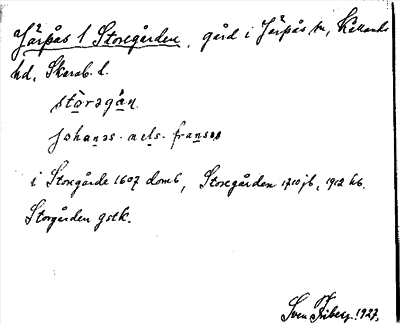 Järpås 1 Storegården, gård i Järpås sn, Kållands
hd, Skarab. l.
stòrəgạ́n.
johanəs - nels - fransəs
i Storgårde 1607 domb, Storegården 1710 jb, 1912 kb.
Storgården gstk.
Sven Friberg 1927.